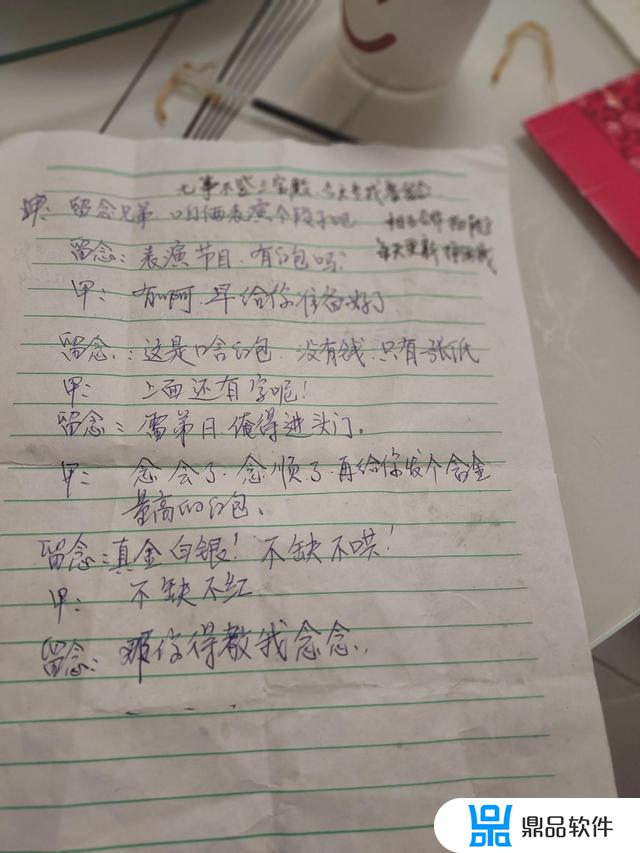 无事不登三宝殿.今天来找
甲: 留念兄弟.咱俩表演个段子吧
每天更新
留念: 表演节目.有红包吗?
甲: 有啊.早给你准备好了
留念: 这是啥红包.没有钱.只有一张纸
甲: 上面还有字呢!
留念: 雷弟日.俺得进头门.
甲: 念会了.念顺了.再给你发个含金
量高的红包.
留念: 真金白银! 不缺不哄!
甲: 不缺不红
留念: 那你得教我念念.
鼎品软件